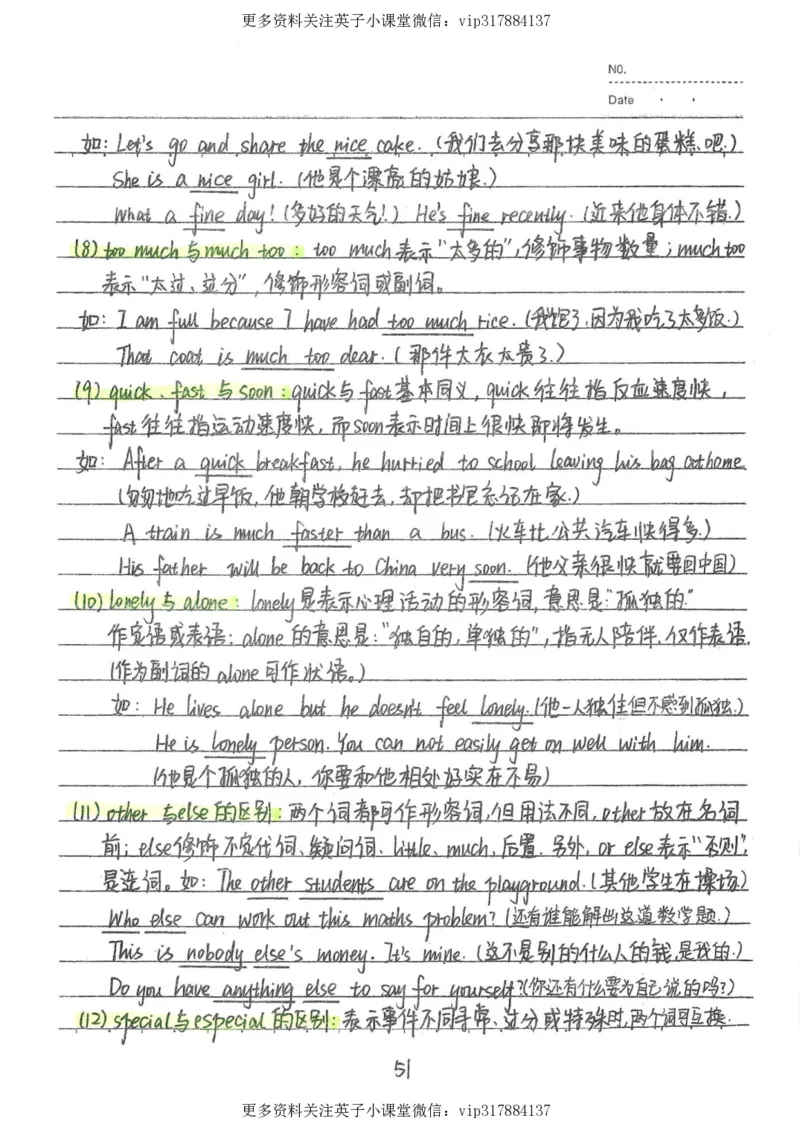 更多资料关注英子小课堂微信：vip317884137
NO.
Date
如: Let's go and share the nice cake. (我们去分享那块美味的蛋糕吧.)
She is a nice girl. (他是个漂亮的姑娘.)
What a fine day! (多好的天气!) He's fine recently. (近来他身体不错.)
(8) too much与much too: too much表示“太多的”,修饰事物数量; much too
表示“太过、过分”,修饰形容词或副词。
如: I am full because I have had too much rice. (我饱了,因为我吃了太多饭.)
That coat is much too dear. (那件大衣太贵了.)
(9) quick、fast 与soon: quick与fast基本同义, quick往往指反应速度快,
fast往往指运动速度快, 而soon表示时间上很快即将发生。
如: After a quick breakfast, he hurried to school leaving his bag at home.
(匆匆地吃过早饭,他朝学校赶去,却把书包忘记在家.)
A train is much faster than a bus. (火车比公共汽车快得多.)
His father will be back to China very soon. (他父亲很快就要回中国)
(10) lonely与alone: lonely是表示心理活动的形容词,意思是:“孤独的”
作定语或表语; alone的意思是:“独自的,单独的”,指无人陪伴.仅作表语.
(作为副词的alone可作状语。)
如: He lives alone but he doesn't feel lonely. (他一人独住但不感到孤独.)
He is lonely person. You can not easily get on well with him.
(他是个孤独的人,你要和他相处好实在不易)
(11) other与else的区别: 两个词都可作形容词,但用法不同, other放在名词
前; else修饰不定代词、疑问词、little、much,后置. 另外, or else表示“否则”,
是连词。如: The other students are on the playground. (其他学生在操场)
Who else can work out this maths problem? (还有谁能解出这道数学题.)
This is nobody else's money. It's mine. (这不是别的什么人的钱,是我的.)
Do you have anything else to say for yourself? (你还有什么要为自己说的吗?)
(12) special与especial的区别: 表示事件不同寻常、过分或特殊时,两个词可互换.
51
更多资料关注英子小课堂微信：vip317884137